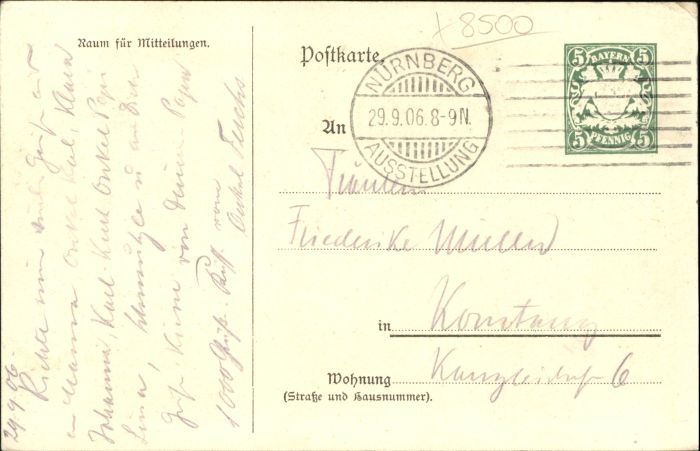 x 8500
Raum für Mitteilungen.
Postkarte.
NÜRNBERG
29.9.06.8-9N.
AUSSTELLUNG
5 BAYERN 5
5 PFENNIG 5
An
Fräulein
Friederike Müller
in Konstanz
Wohnung Kanzleistr 6
(Straße und Hausnummer).
29.9.06
Richte nun viele Grüße aus
an Mama Onkel Karl, Klara
Johanna, Karl. Kurt Onkel Papi
Lina, u an Dich
Grüße Küsse von Deinem Papa
1000 Grüße. Kuß von
Onkel Fuchs